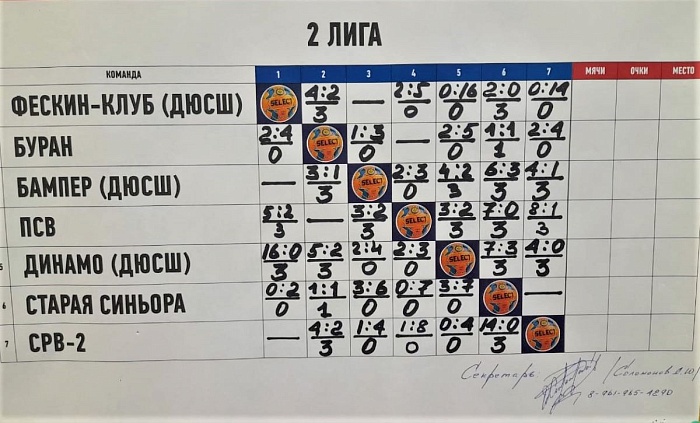 2 ЛИГА
КОМАНДА 1 2 3 4 5 6 7 МЯЧИ ОЧКИ МЕСТО
ФЕСКИН-КЛУБ (ДЮСШ) SELECT 4:2 — 2:5 0:16 2:0 0:14
3 0 0 3 0
БУРАН 2:4 SELECT 1:3 — 2:5 1:1 2:4
0 0 0 1 0
БАМПЕР (ДЮСШ) — 3:1 SELECT 2:3 4:2 6:3 4:1
3 0 3 3 3
ПСВ 5:2 — 3:2 SELECT 3:2 7:0 8:1
3 3 3 3 3
5 ДИНАМО (ДЮСШ) 16:0 5:2 2:4 2:3 SELECT 7:3 4:0
3 3 0 0 3 3
6 СТАРАЯ СИНЬОРА 0:2 1:1 3:6 0:7 3:7 SELECT —
0 1 0 0 0
7 СРВ-2 — 4:2 1:4 1:8 0:4 14:0 SELECT
3 0 0 0 3
Секретарь
8-961-965-4290